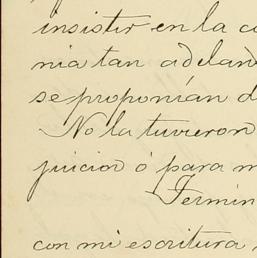 insistir en la co
nia tan adelan
se proponían d
No la tuvieron
juicio ó para m
Fermín
con mi escritura